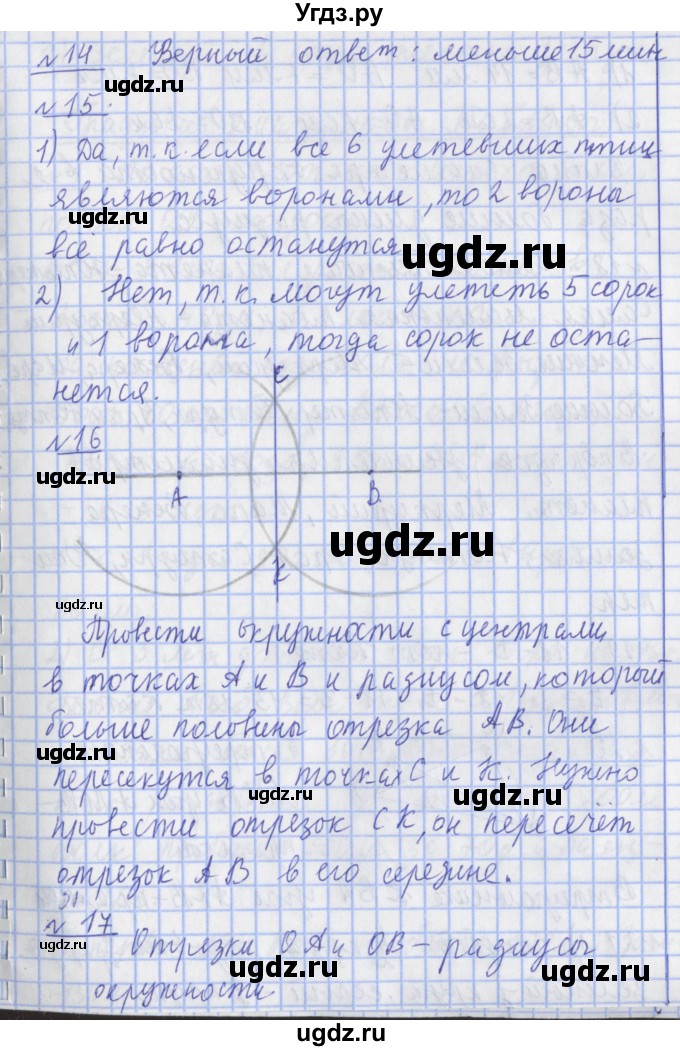 Угдз.ру
№14 Верный ответ: меньше 15 мин
№15.
ugdz.ru
1) Да, т.к. если все 6 улетевших птиц
являются воронами, то 2 вороны
ugdz.ru
всё равно останутся.
ugdz.ru
2) Нет, т.к. могут улететь 5 сорок
ugdz.ru
и 1 ворона, тогда сорок не оста-
нется.
C
№16
ugdz.ru
A
B
ugdz.ru
K
ugdz.ru
Провести окружности с центрами
в точках А и В и радиусом, который
больше половины отрезка АВ. Они
ugdz.ru
пересекутся в точках С и К. Нужно
ugdz.ru
ugdz.ru
провести отрезок СК, он пересечёт
отрезок АВ в его середине.
ugdz.ru
№17
Отрезки ОА и ОВ – радиусы
ugdz.ru
ugdz.ru
окружности
ugdz.ru